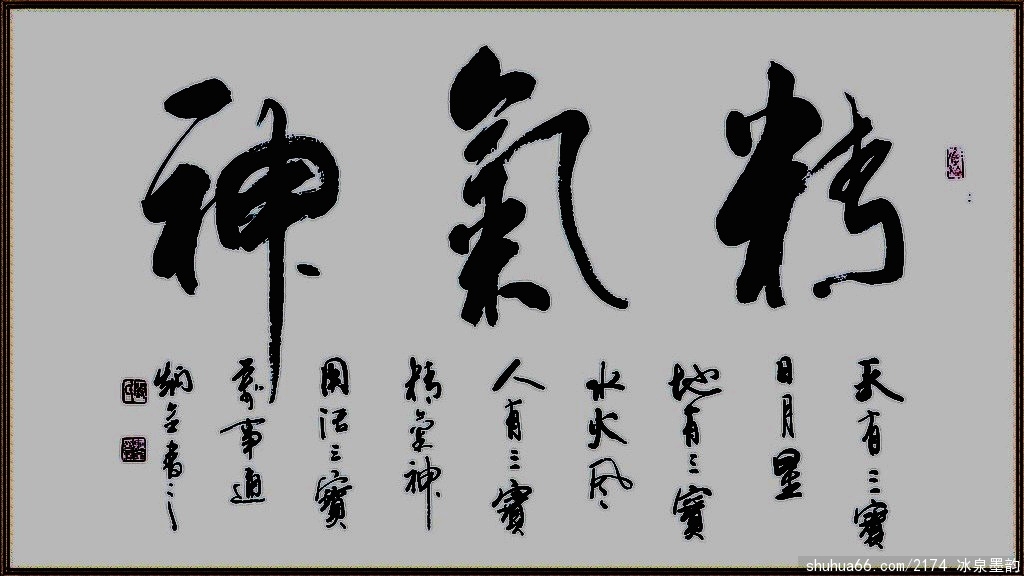 精氣神
天有三寶
日月星
地有三寶
水火风
人有三寶
精氣神
三寶
萬事通
shuhua66.com/2174 冰泉墨韵